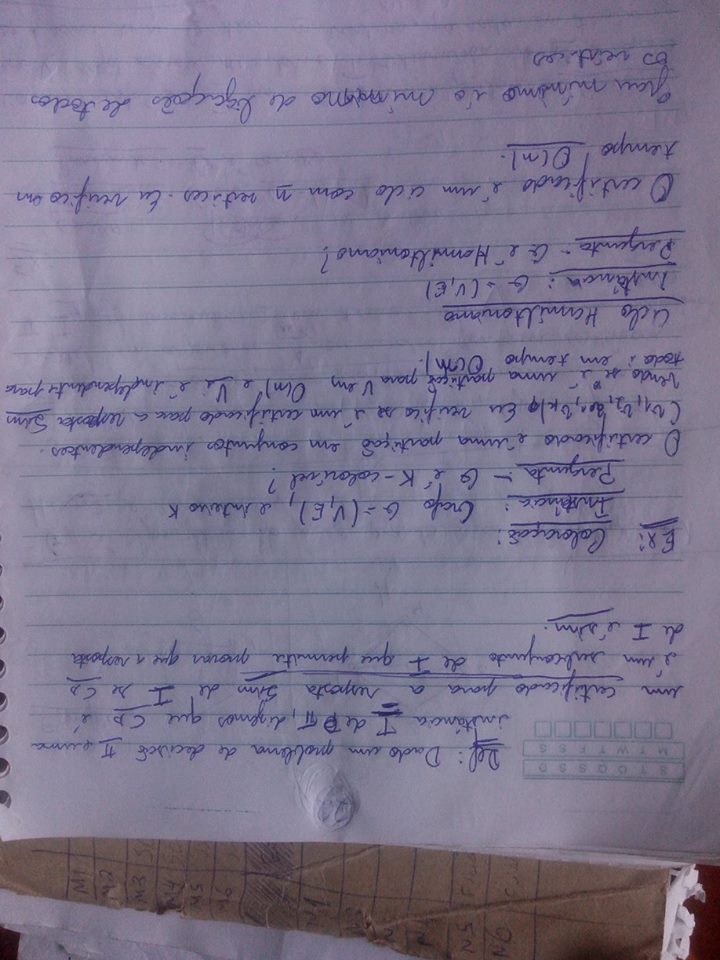 S T Q Q S S D
M T W T F S S
Def: Dado um problema de decisão Π e uma
instância I de Π, digamos que CD é
um certificado para a resposta Sim de I se CD
é um subconjunto de I que permite provar que a resposta
de I é sim.
Ex: Coloração:
Instância: Grafo G=(V,E), e inteiro K
Pergunta - G é K-colorível?
O certificado é uma partição em conjuntos independentes.
(V1, V2, ..., VK). Eu verifico se é um certificado para a resposta Sim
vendo se é uma partição para V em O(n) e Vi é independente para
todo i em tempo O(m).
Ciclo Hamiltoniano
Instância: G=(V,E)
Pergunta - G é Hamiltoniano?
O certificado é um ciclo com n vertices. Eu verifico em
tempo O(n).
Grau mínimo é o mínimo de ligações de todos
os vertices
M1
M2
M3
M4
M5
M6
N1
N5
N6